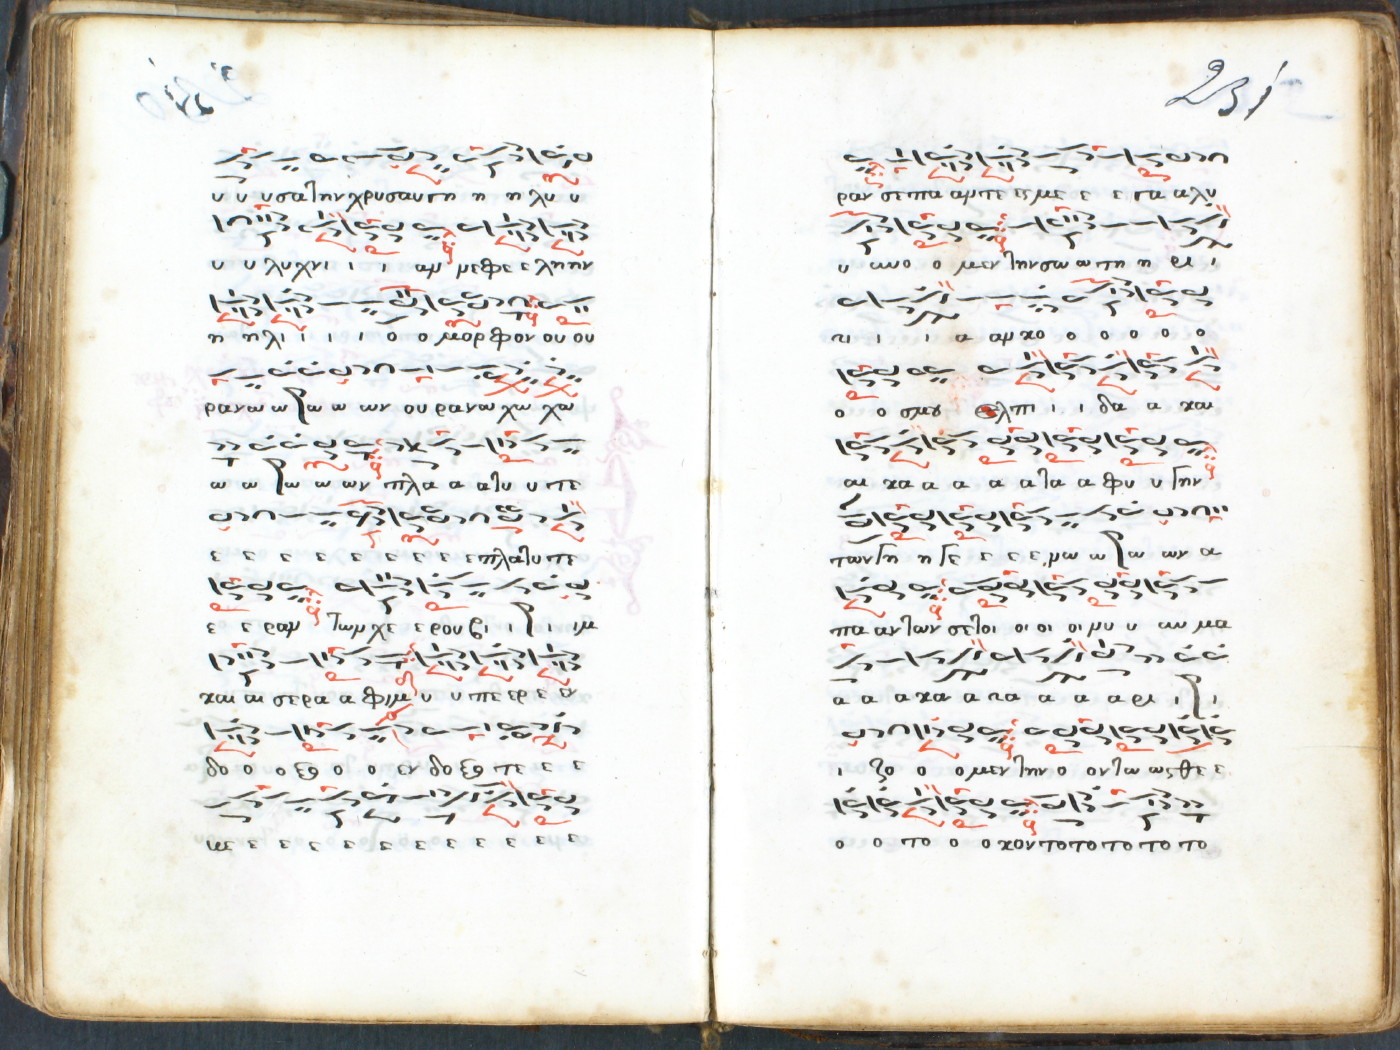 υ υ υσα την χρυσαυγη η η λυ υ
υ υ λυχνι ι ι αμ μεφε ε λη ην
η η λι ι ι ι ο ο μορφον ου ου
ρανω ω ω ω ων ου ρανω χω χω
ω ω ω ω ων πλα α α τυ υ τε
ε ε ε ε ε ε ε ε επλατυτε
ε ε ραν των χε ε ρου βι ι ι ιμ
και αι σε ρα α φιμ υ υ πε ερ ε εν
δο ο ο ξο ο ο εν δο ξο τε ε ε
ε ε ε ε ε ε ε ε ε ε ε
231
ραν σε πα αντε ες με ε ε γα α λυ
υ νωο ο μεν την σω ω τη η ρι ι
ι ι ι α αμ χο ο ο ο ο ο
ο ο σμου ελπι ι ι δα α και
αι κα α α α α τα α φυ υ γην
των γη η γε ε ε ε μω ω ω ων α
πα αν των σε τοι οι οι οι μυ υ μα
α α α κα α α α α α α ρι ι ι
ι ζο ο ο μεν την ο ον τω ως θε ε
ο ο το ο ο κον το το το το το